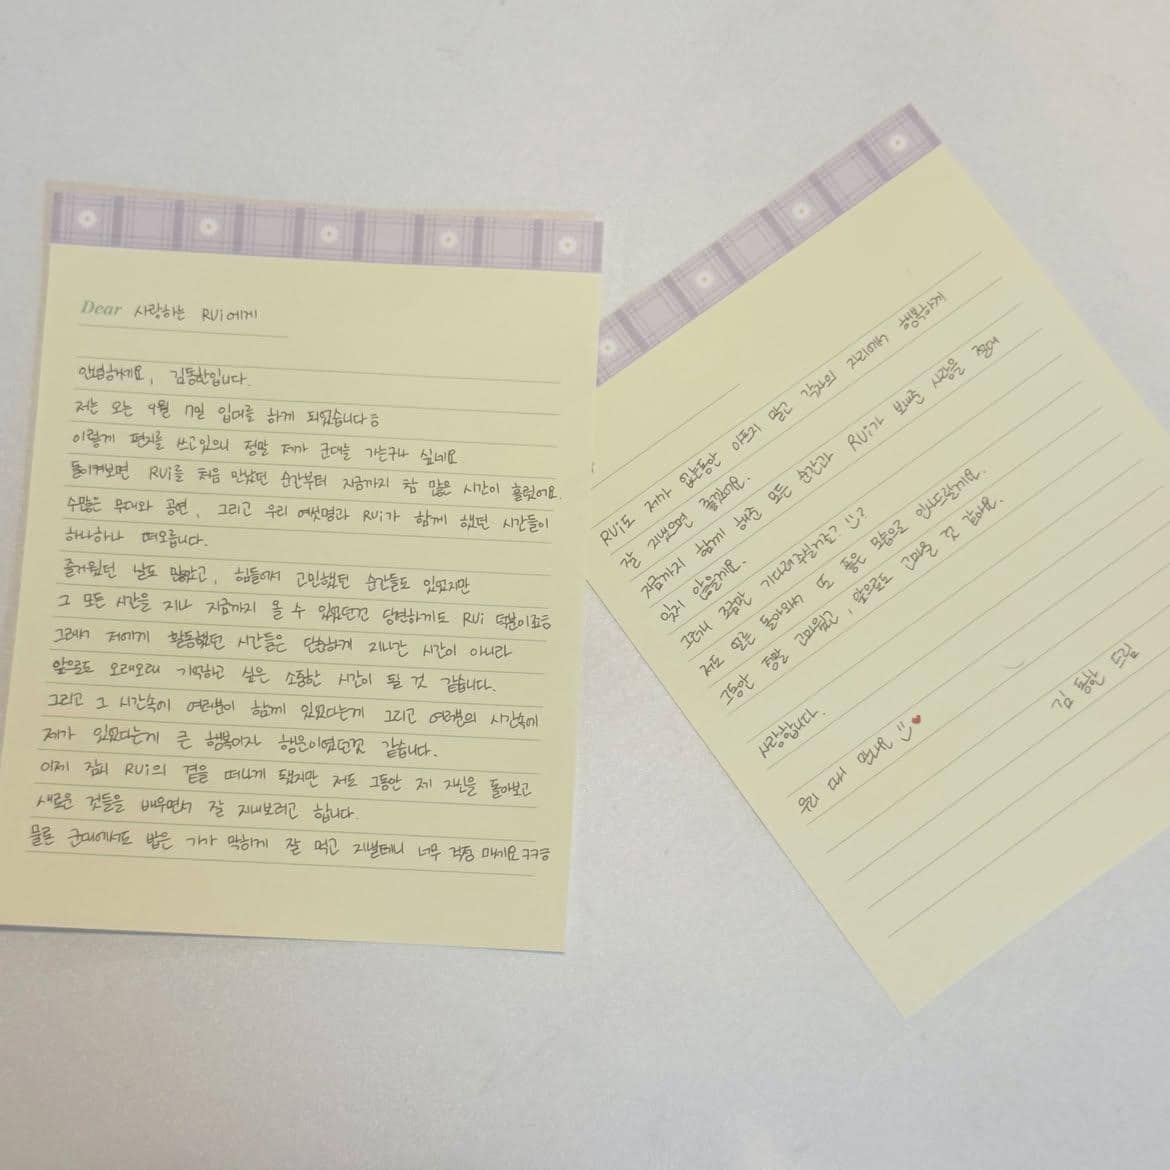 Dear 사랑하는 RUi에게
안녕하세요, 김동한입니다.
저는 오는 9월 7일 입대를 하게 되었습니다ㅎ
이렇게 편지를 쓰고있으니 정말 제가 군대를 가는구나 싶네요
돌이켜보면 RUi를 처음 만났던 순간부터 지금까지 참 많은 시간이 흘렀어요.
수많은 무대와 공연, 그리고 우리 여섯명과 RUi가 함께 했던 시간들이
하나하나 떠오릅니다.
즐거웠던 날도 많았고, 힘들어서 고민했던 순간들도 있었지만
그 모든 시간을 지나 지금까지 올 수 있었던건 당연하게도 RUi 덕분이죠ㅎ
그래서 저에게 활동했던 시간들은 단순하게 지나간 시간이 아니라
앞으로도 오래오래 기억하고 싶은 소중한 시간이 될 것 같습니다.
그리고 그 시간속에 여러분이 함께 있었다는게 그리고 여러분의 시간속에
제가 있었다는게 큰 행복이자 행운이였던것 같습니다.
이제 잠시 RUi의 곁을 떠나게 됐지만 저도 그동안 제 자신을 돌아보고
새로운 것들을 배우면서 잘 지내보려고 합니다.
물론 군대에서도 밥은 기가 막히게 잘 먹고 지낼테니 너무 걱정 마세요ㅋㅋㅎ
RUi도 제가 없는동안 아프지 말고 각자의 자리에서 행복하게
잘 지냈으면 좋겠어요.
지금까지 함께 해준 모든 순간과 RUi가 보내준 사랑을 절대
잊지 않을게요.
그러니 조금만 기다려주실거죠? :)?
저도 얼른 돌아와서 또 좋은 모습으로 인사드릴게요.
그동안 정말 고마웠고, 앞으로도 고마울 것 같아요.
사랑합니다.
우리 또 만나요 :) ♥
김동한 드림